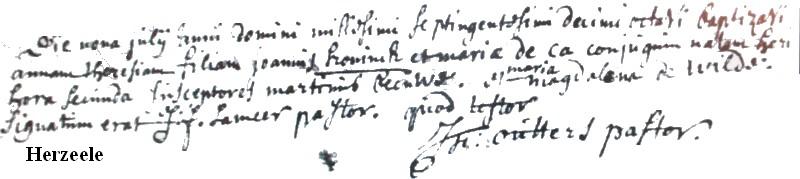 Die nona julij anni domini millesimi septingentesimi decimi octavi baptizavi
annam theresiam filiam joannis hronink et maria de ca conjugum natam heri
hora secunda susceptores martinus et maria magdalena de wilde.
signatum erat J. J. Lameer pastor. quod testor
Th. pastor.
Herzeele